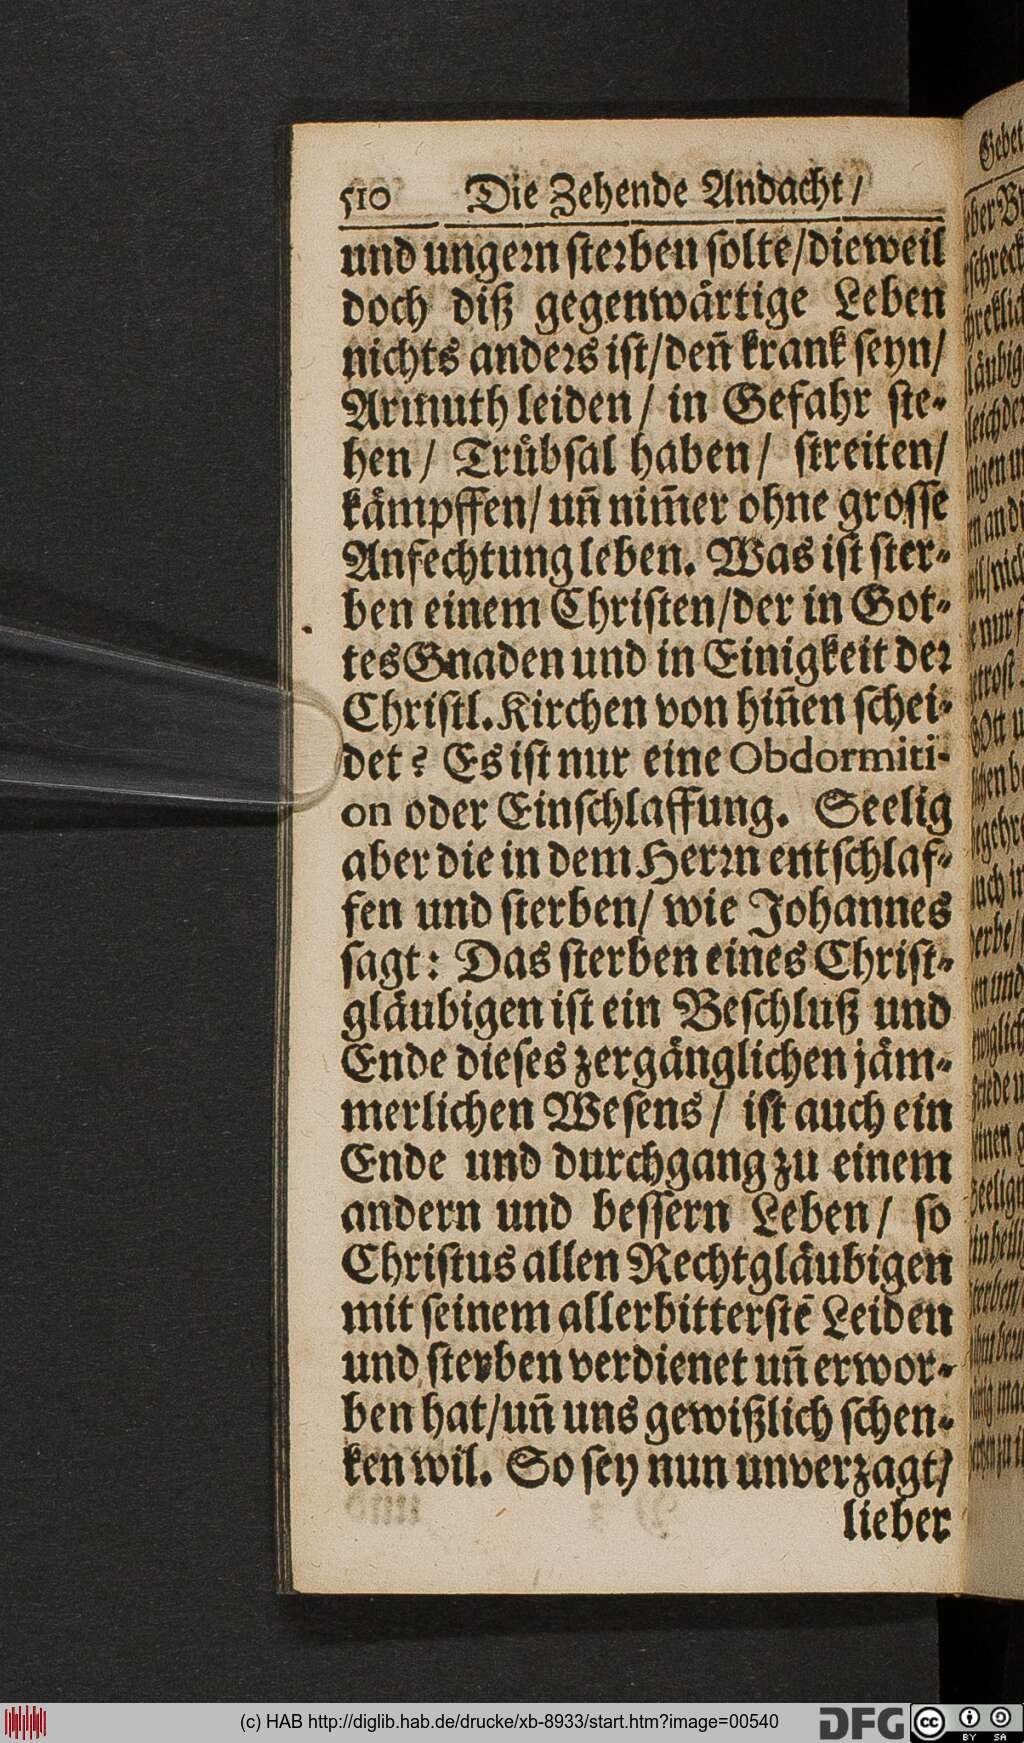 510 Die Zehende Andacht /
und ungern sterben solte/dieweil
doch diß gegenwärtige Leben
nichts anders ist/deñ krank seyn/
Armuth leiden/ in Gefahr ste-
hen/ Trübsal haben/ streiten/
kämpffen/ uñ nim̃er ohne grosse
Anfechtung leben. Was ist ster-
ben einem Christen/der in Got-
tes Gnaden und in Einigkeit der
Christl. Kirchen von hiñen schei-
det? Es ist nur eine Obdormiti-
on oder Einschlaffung. Seelig
aber die in dem Herrn entschlaf-
fen und sterben/ wie Johannes
sagt: Das sterben eines Christ-
gläubigen ist ein Beschluß und
Ende dieses zergänglichen jäm-
merlichen Wesens/ ist auch ein
Ende und durchgang zu einem
andern und bessern Leben/ so
Christus allen Rechtgläubigen
mit seinem allerbitterstē Leiden
und sterben verdienet uñ erwor-
ben hat/uñ uns gewißlich schen-
ken wil. So sey nun unverzagt/
lieber
(c) HAB http://diglib.hab.de/drucke/xb-8933/start.htm?image=00540
DFG cc BY SA